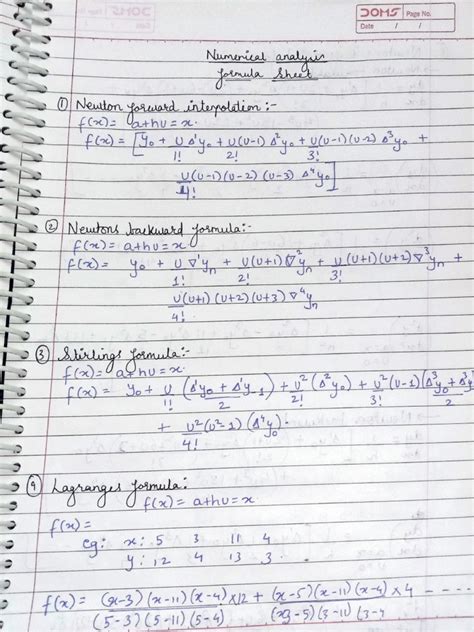 DOMS Page No.
Date / /
Numerical analysis
formula sheet
① Newton forward interpolation :-
f(x) = a+hu = x.
f(x) = [y₀ + U Δ'y₀ + U(U-1) Δ²y₀ + U(U-1)(U-2) Δ³y₀ +
1! 2! 3!
U(U-1)(U-2)(U-3) Δ⁴y₀]
4!
② Newtons backward formula:-
f(x) = a+hu = x
f(x) = y₀ + U ∇'yₙ + U(U+1) ∇²yₙ + U(U+1)(U+2) ∇³yₙ +
1! 2! 3!
U(U+1)(U+2)(U+3) ∇⁴yₙ
4!
③ Stirlings formula:-
f(x) = a+hu = x
f(x) = y₀ + U (Δ'y₀ + Δ'y₋₁) + U² (Δ²y₀) + U² (U-1) (Δ³y₀ + Δ³y
1! 2 2! 3! 2
+ U²(U²-1) (Δ⁴y₀).
4!
④ Lagranges formula:
f(x) = a+hu = x.
f(x) =
eg: x: 5 3 11 4
y: 12 4 13 3
f(x) = (x-3)(x-11)(x-4) ×12 + (x-5)(x-11)(x-4) ×4 - - - -
(5-3)(5-11)(5-4) (3-5)(3-11)(3-4